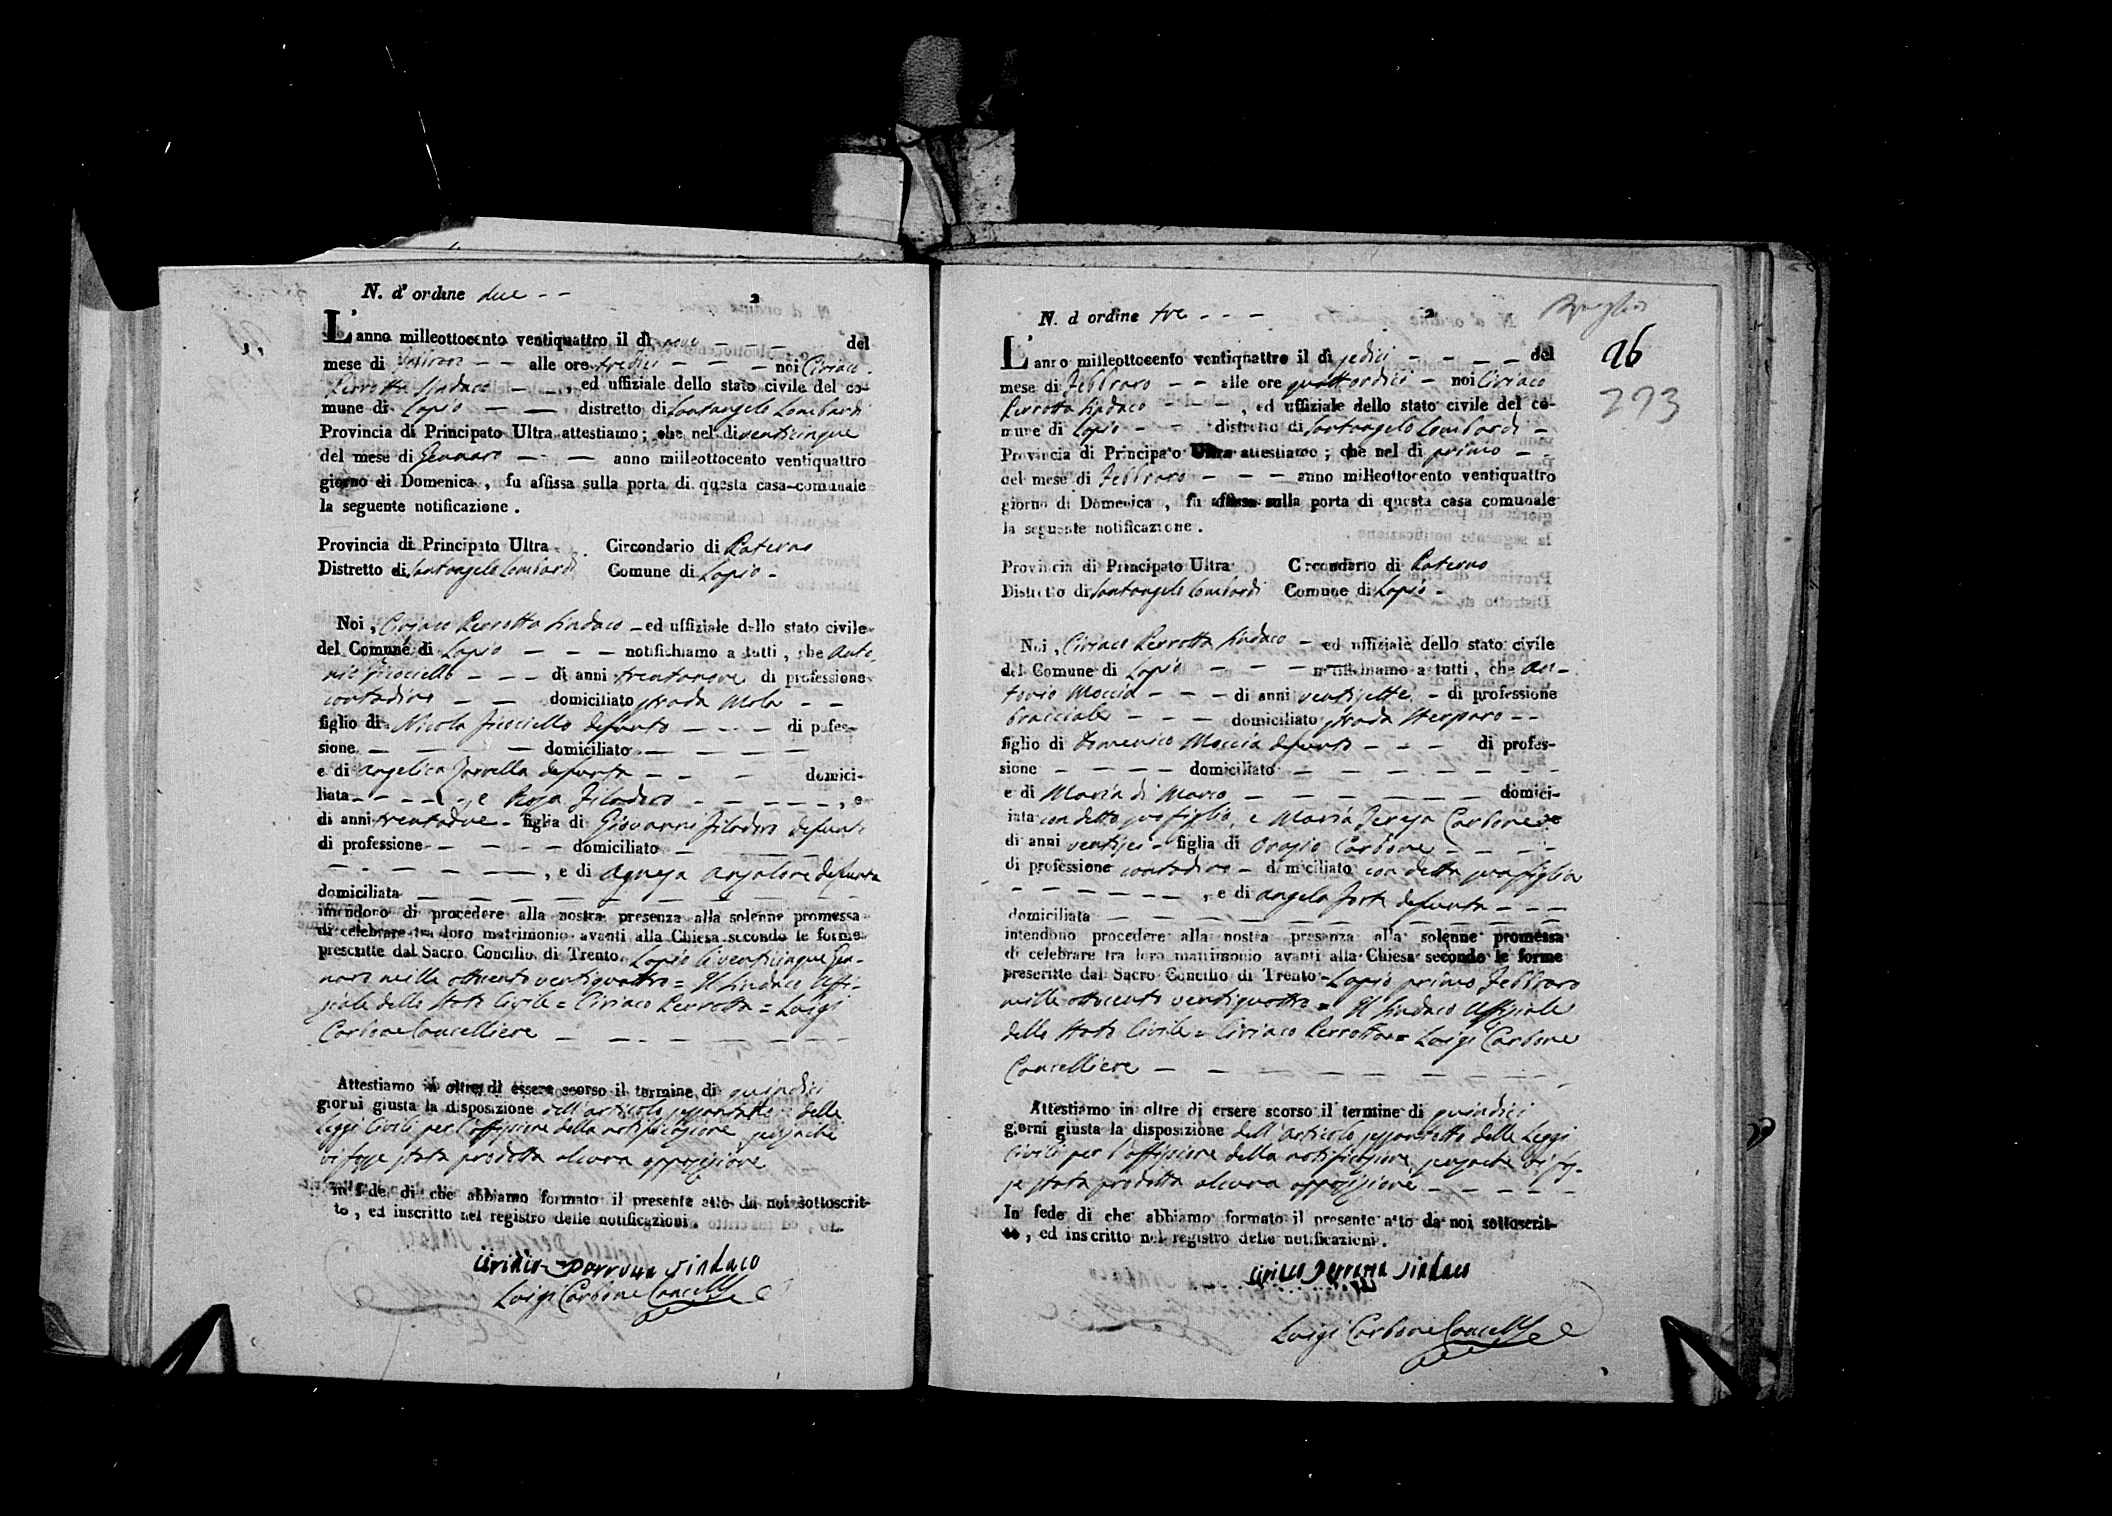 N. d'ordine due - -
2
L'anno milleottocento ventiquattro il dì nove - - - del
mese di Febbraro - - alle ore tredici - - - noi Ciriaco
Perrotta Sindaco - - -, ed uffiziale dello stato civile del co-
mune di Lapio - - distretto di Santangelo Lombardi
Provincia di Principato Ultra attestiamo; che nel di venticinque
del mese di Gennaro - - - anno milleottocento ventiquattro
giorno di Domenica, fu affissa sulla porta di questa casa-comunale
la seguente notificazione.
Provincia di Principato Ultra Circondario di Paterno
Distretto di Santangelo Lombardi Comune di Lapio -
Noi, Ciriaco Perrotta Sindaco - ed uffiziale dello stato civile
del Comune di Lapio - - - notifichiamo a tutti, che Anto-
nio - - - di anni trentanove di professione
contadino - - domiciliato strada Mola - -
figlio di Nicola defunto - - - di pofes-
sione - - - - domiciliato - - - -
e di Angelica defunta - - - domici-
liata - - - -, e Rosa Filadoro - - - - -, e
di anni trentadue - figlia di Giovanni Filadoro defunto
di professione - - - - domiciliato - - -
- - - - -, e di Agnesa defunta
domiciliata - - - - - - - -
intendono di procedere alla nostra presenza alla solenne promessa
di celebrare tra loro matrimonio avanti alla Chiesa secondo le forme
prescritte dal Sacro Concilio di Trento. Lapio li venticinque Gen-
naro mille ottocento ventiquattro = Il Sindaco Uffi-
ziale dello Stato Civile = Ciriaco Perrotta = Luigi
Carbone Cancelliere - - - - - - -
Attestiamo in oltre di essere scorso il termine di quindici
giorni giusta la disposizione dell'articolo sessantotto delle
Leggi Civili per l'affissione della notificazione senzache
vi fosse stata prodotta alcuna opposizione
In fede di che abbiamo formato il presente atto da noi sottoscrit-
to, ed inscritto nel registro delle notificazioni.
Ciriaco Perrotta Sindaco
Luigi Carbone Cancell
N. d ordine tre - - -
2
96
273
L'anno milleottocento ventiquattro il dì sedici - - - - del
mese di Febbraro - - alle ore quattordici - noi Ciriaco
Perrotta Sindaco - - -, ed uffiziale dello stato civile del co-
mune di Lapio - - distretto di Santangelo Lombardi -
Provincia di Principato Ultra attestiamo; che nel di primo - -
del mese di Febbraro - - - anno milleottocento ventiquattro
giorno di Domenica, fu affissa sulla porta di questa casa comunale
la seguente notificazione.
Provincia di Principato Ultra Circondario di Paterno
Distretto di Santangelo Lombardi Comune di Lapio -
Noi, Ciriaco Perrotta Sindaco - ed uffiziale dello stato civile
del Comune di Lapio - - - notifichiamo a tutti, che An-
tonio Moccia - - - di anni ventisette - di professione
bracciale - - - domiciliato strada - -
figlio di Domenico Moccia defunto - - - di profes-
sione - - - - domiciliato - - - - - -
e di Maria di Marco - - - - - - domici-
iata con detto suo figlio, e Maria Teresa Carbone
di anni ventisei - figlia di Orazio Carbone - - - -
di professione contadino - domiciliato con detta sua figlia
- - - - - -, e di Angela Forte defunta - - -
domiciliata - - - - - - - -
intendono procedere alla nostra presenza alla solenne promessa
di celebrare tra loro matrimonio avanti alla Chiesa secondo le forme
prescritte dal Sacro Concilio di Trento - Lapio primo Febbraro
mille ottocento ventiquattro = Il Sindaco Uffiziale
dello Stato Civile = Ciriaco Perrotta = Luigi Carbone
Cancelliere - - - - - - - -
Attestiamo in oltre di essere scorso il termine di quindici
giorni giusta la disposizione dell'articolo sessantotto delle Leggi
Civili per l'affissione della notificazione, senzache vi fos-
se stata prodotta alcuna opposizione - - - - -
In fede di che abbiamo formato il presente atto da noi sottoscrit-
to, ed inscritto nel registro delle notificazioni.
Ciriaco Perrotta Sindaco
Luigi Carbone Cancell